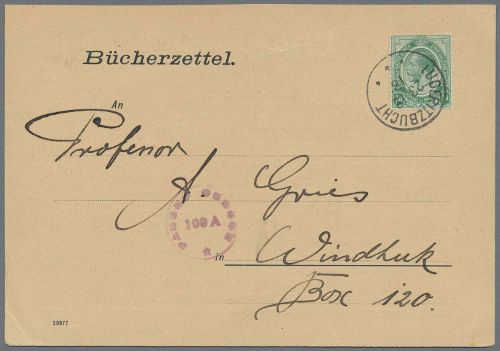 Bücherzettel.
LÜDERITZBUCHT
An
Professor
A. Gries
100 A
in Windhuk
Box 120.